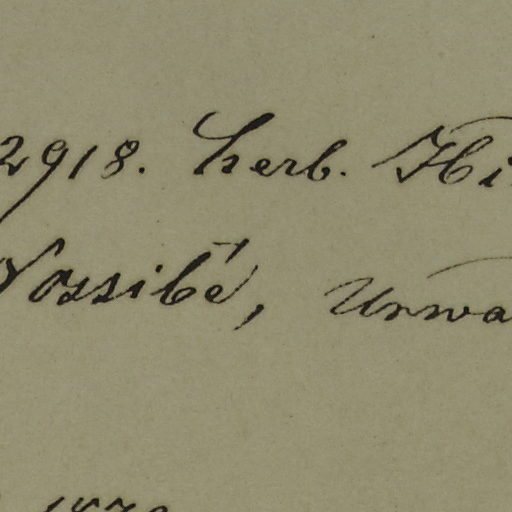 2918. herb. Hi
Nossibé, Urwa